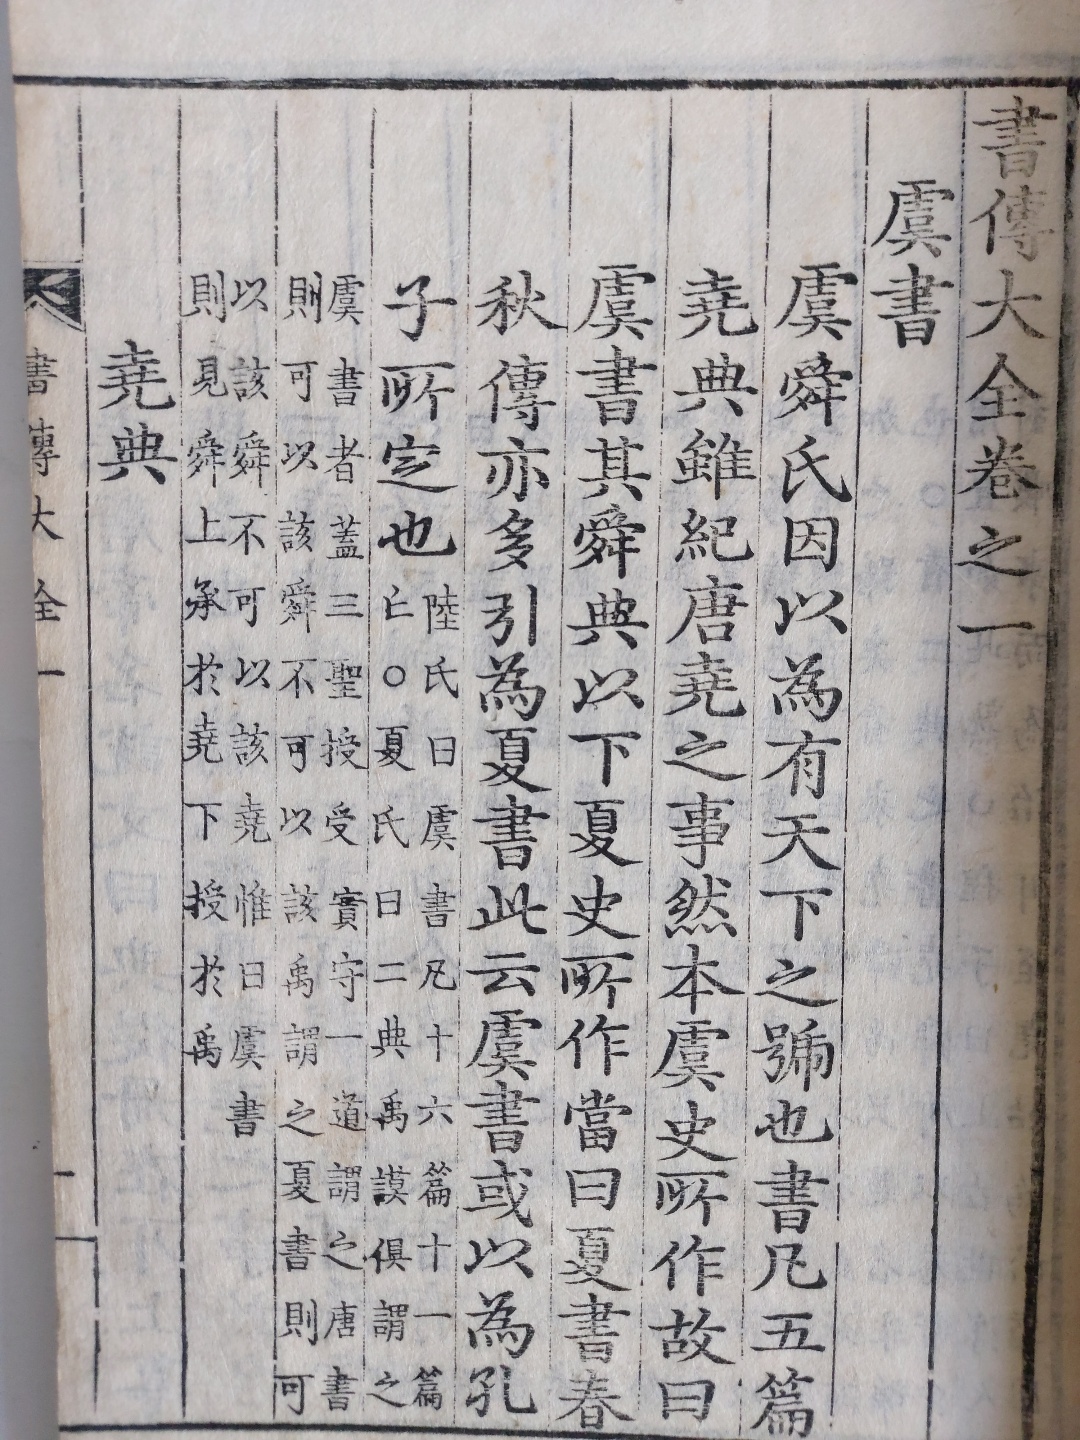 書傳大全卷之一
虞書
虞舜氏因以為有天下之號也書凡五篇
堯典雖紀唐堯之事然本虞史所作故曰
虞書其舜典以下夏史所作當曰夏書春
秋傳亦多引為夏書此云虞書或以為孔
子所定也
陸氏曰虞書凡十六篇十一篇
亡○夏氏曰二典禹謨俱謂之
虞書者蓋三聖授受實守一道謂之唐書
則可以該舜不可以該禹謂之夏書則可
以該舜不可以該堯惟曰虞書
則見舜上承於堯下授於禹
堯典
書傳大全一
一